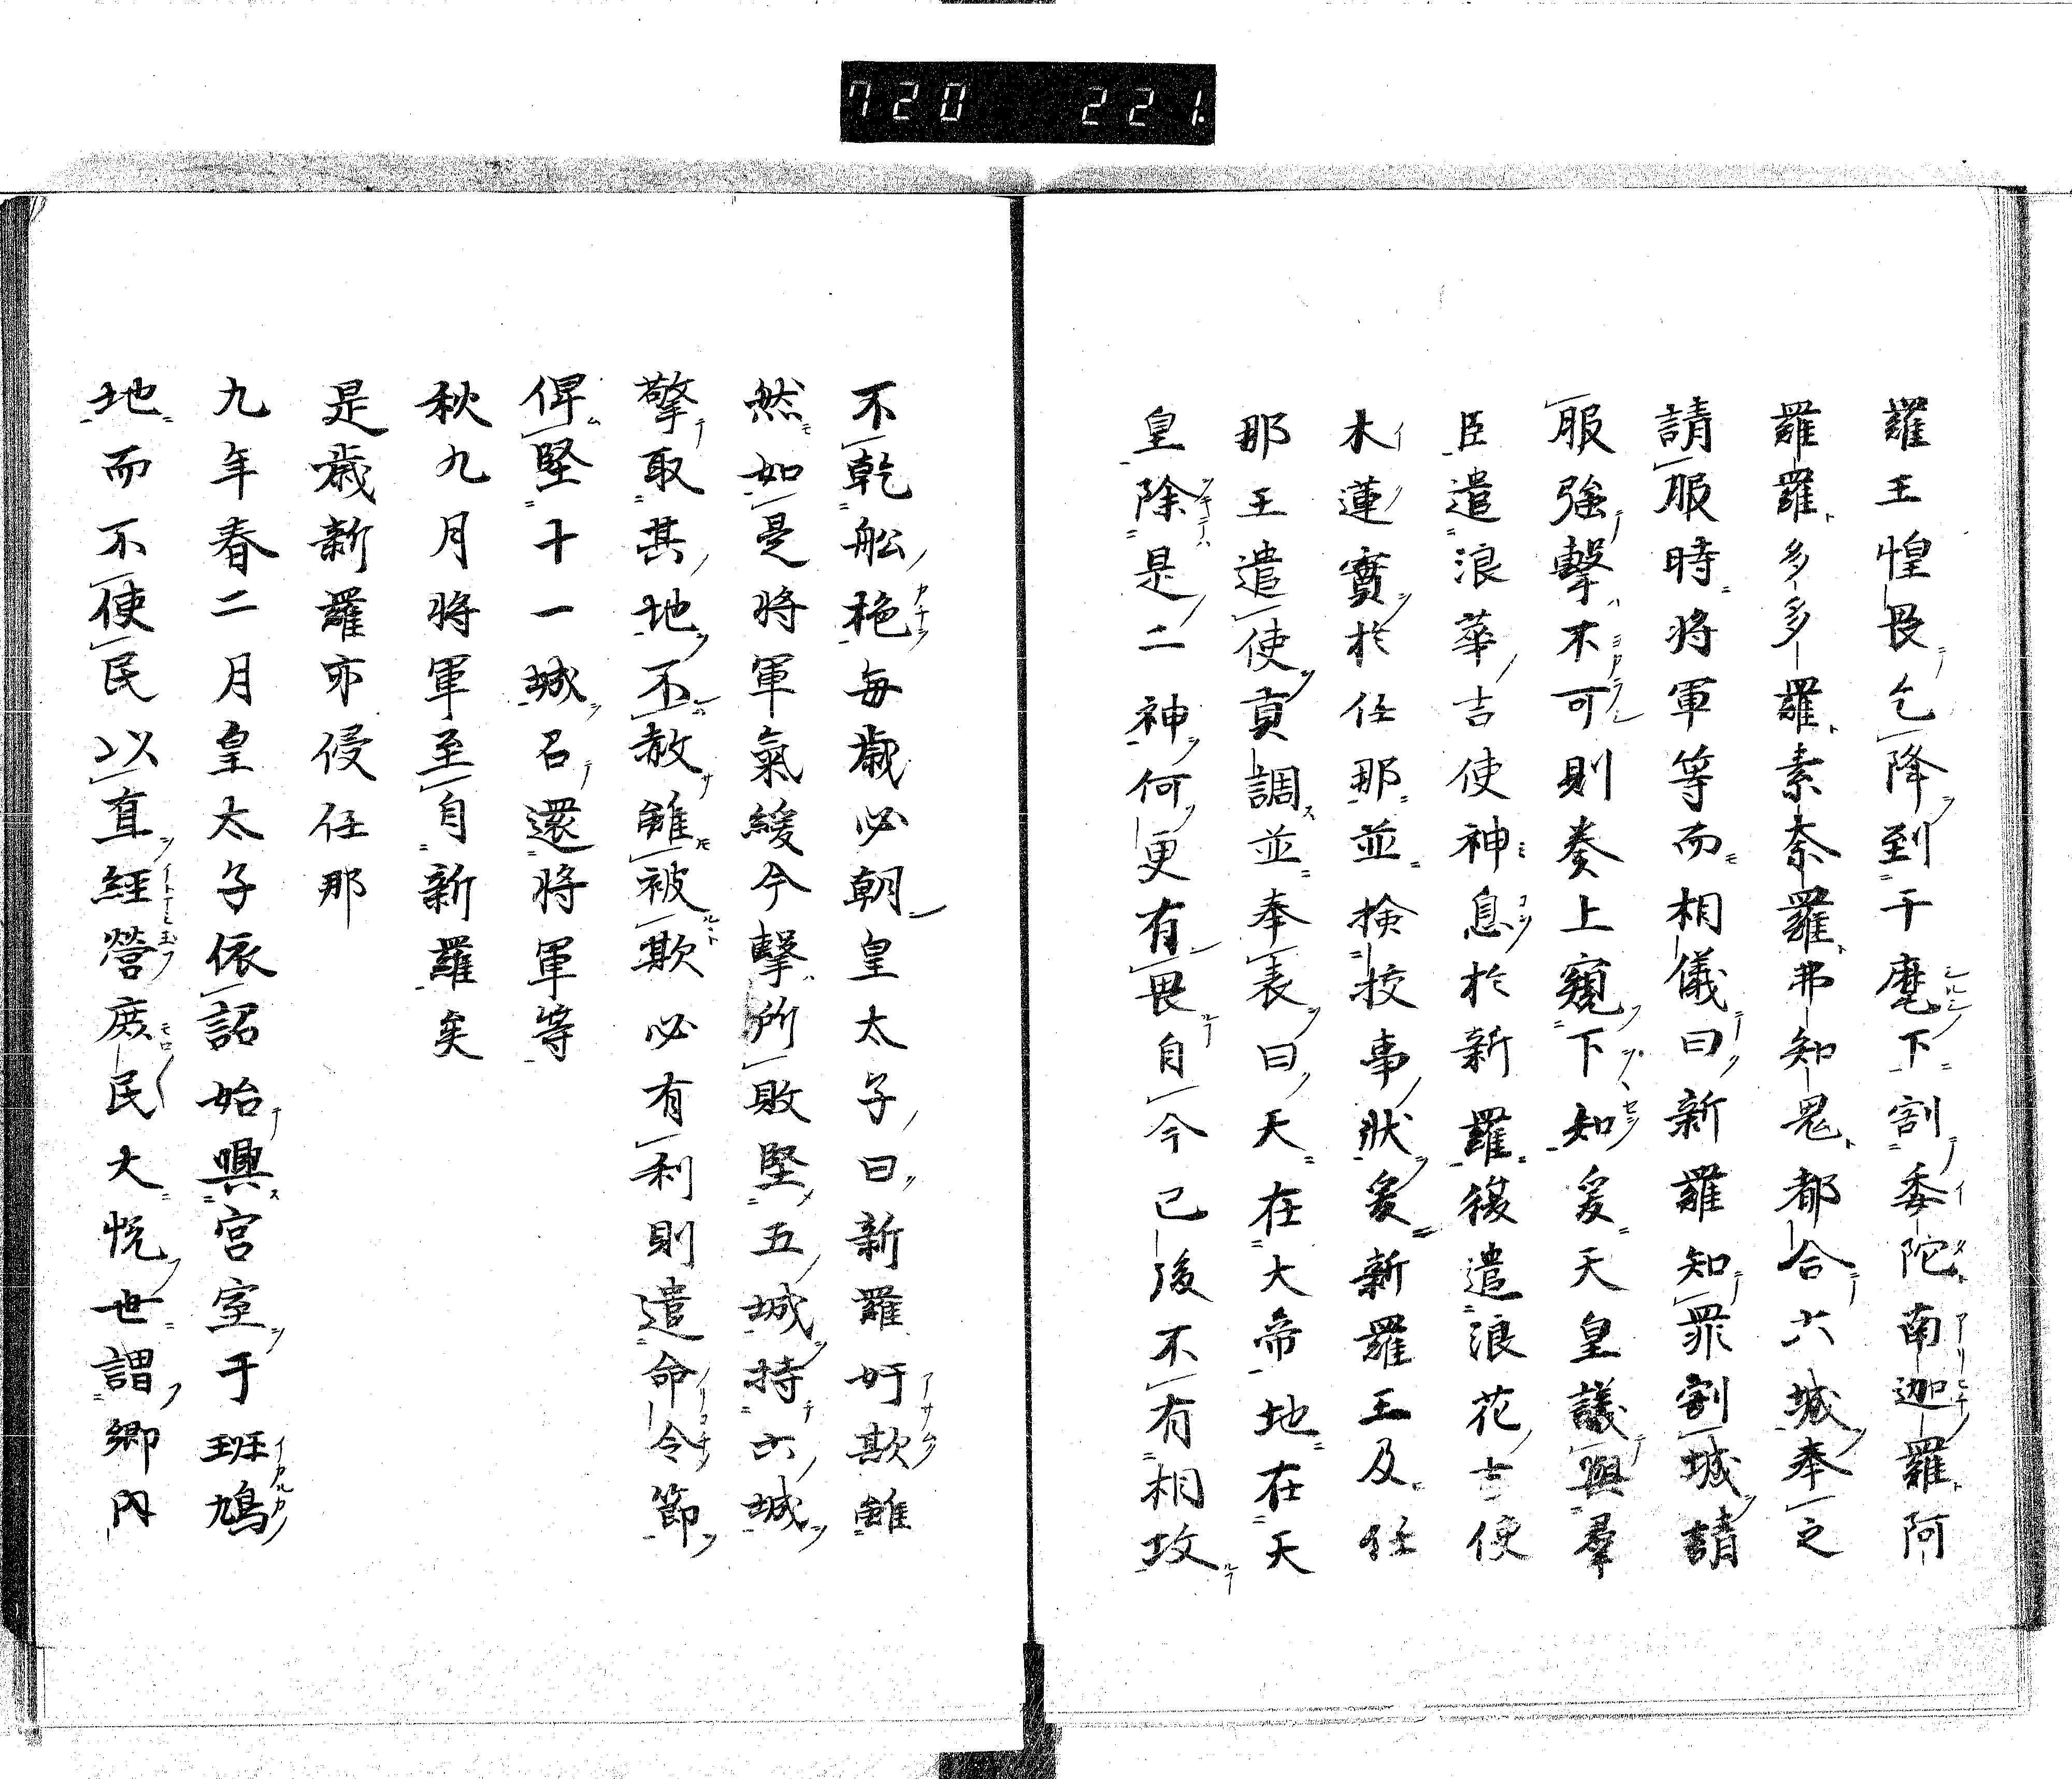 720 221
羅王惶畏乞降到于麾下割委陀南迦羅阿
羅羅多多羅素奈羅弗知鬼都合六城奉之
請服時将軍等而相儀曰新羅知罪割城請
服強撃不可則奏上窺下知爰天皇議興羣
臣遣浪華吉使神息於新羅復遣浪花吉使
木蓮實於任那並検挍事状爰新羅王及任
那王遣使貢調並奉表曰天在大帝地在天
皇除是二神何更有畏自今已後不有相攻
不乾舩桅毎歳必朝皇太子曰新羅奸欺雖
然如是将軍氣緩今撃所敗堅五城持六城
擎取其地不赦雖被欺必有利則遣命令節
俾堅十一城召還将軍等
秋九月将軍至自新羅矣
是歳新羅亦侵任那
九年春二月皇太子依詔始興宮室于班鳩
地而不使民以直經營庶民大悦世謂郷内